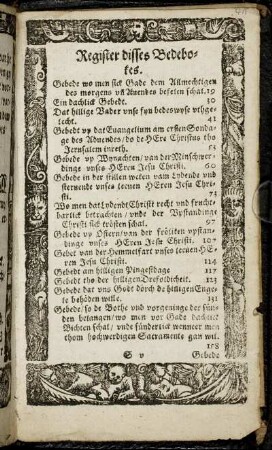 Register disses Bedebo-
kes.
Gebede wo men sick Gade dem Allmechtigen
des morgens vn̄ Auendes befelen schal. 19
Ein dachlick Gebedt. 30
Dat hillige Vader vnse syn bedeswyse vthge-
lecht. 41
Gebedt vp dat Euangelium am ersten Sonda-
ge des Aduendes / do de HEre Christus tho
Jerusalem inreth. 55
Gebede vp Wynachten / van der Minschwer-
dinge vnses HEren Jesu Christi. 60
Gebede in der stillen weken vam Lydende vnd
steruende vnses leeuen HEren Jesu Chri-
sti. 73
Wo men dat Lydendt Christi recht vnd frucht-
barlick betrachten / vnde der Vpstandinge
Christi sick trösten schal. 97
Gebede vp Ostern / van der frölifen vpstan-
dinge vnses HEren Jesu Christi. 107
Gebet van der Hemmelfart vnses leeuen HE-
ren Jesu Christi. 114
Gebedt am hilligen Pingestdage 117
Gebedt tho der hilligen Drefoldicheit. 123
Gebedt dat vns Godt dörch de hilligen Enge-
le behöden wille. 131
Gebede / so de Bothe vnd vorgeninge der sün-
den belangen / wo men vor Gade dachlick
Bichten schal / vnde sünderlick wenneer men
thom hochwerdigen Sacramente gan wil.
158
S v Gebede